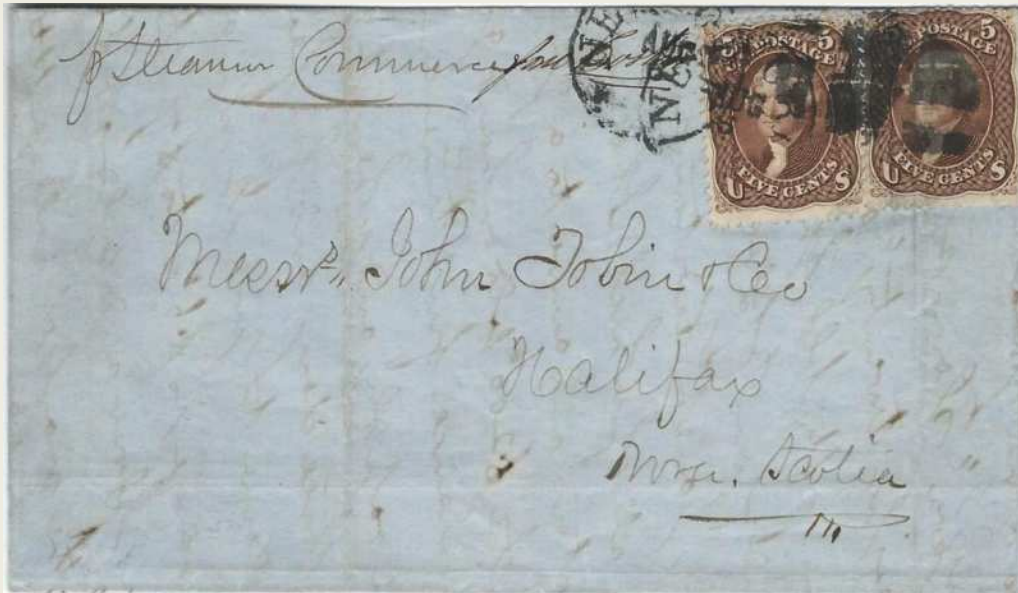 pr Steamer Commerce from Boston
NE NEW
5 POSTAGE 5
U FIVE CENTS S
POSTAGE 5
U FIVE CENTS S
Messrs. John Tobin & Co
Halifax
Nova Scotia